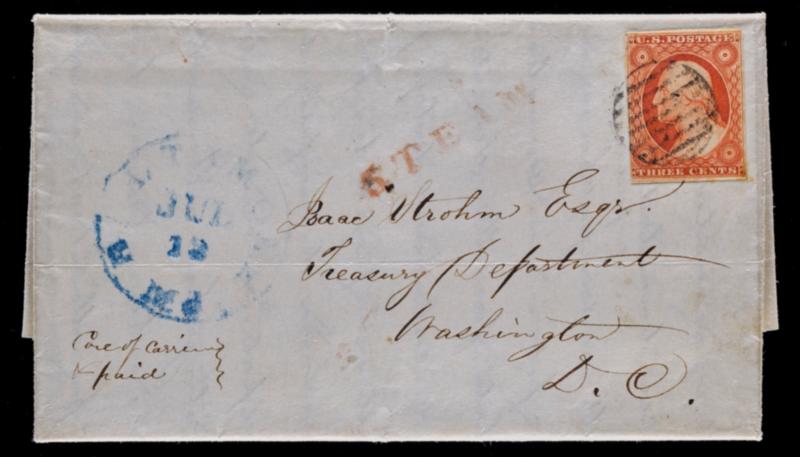 U.S. POSTAGE
THREE CENTS
STEAM
JUL
12
Isaac Strohm Esqr.
Treasury Department
Washington
D. C.
Care of Carrier
& paid